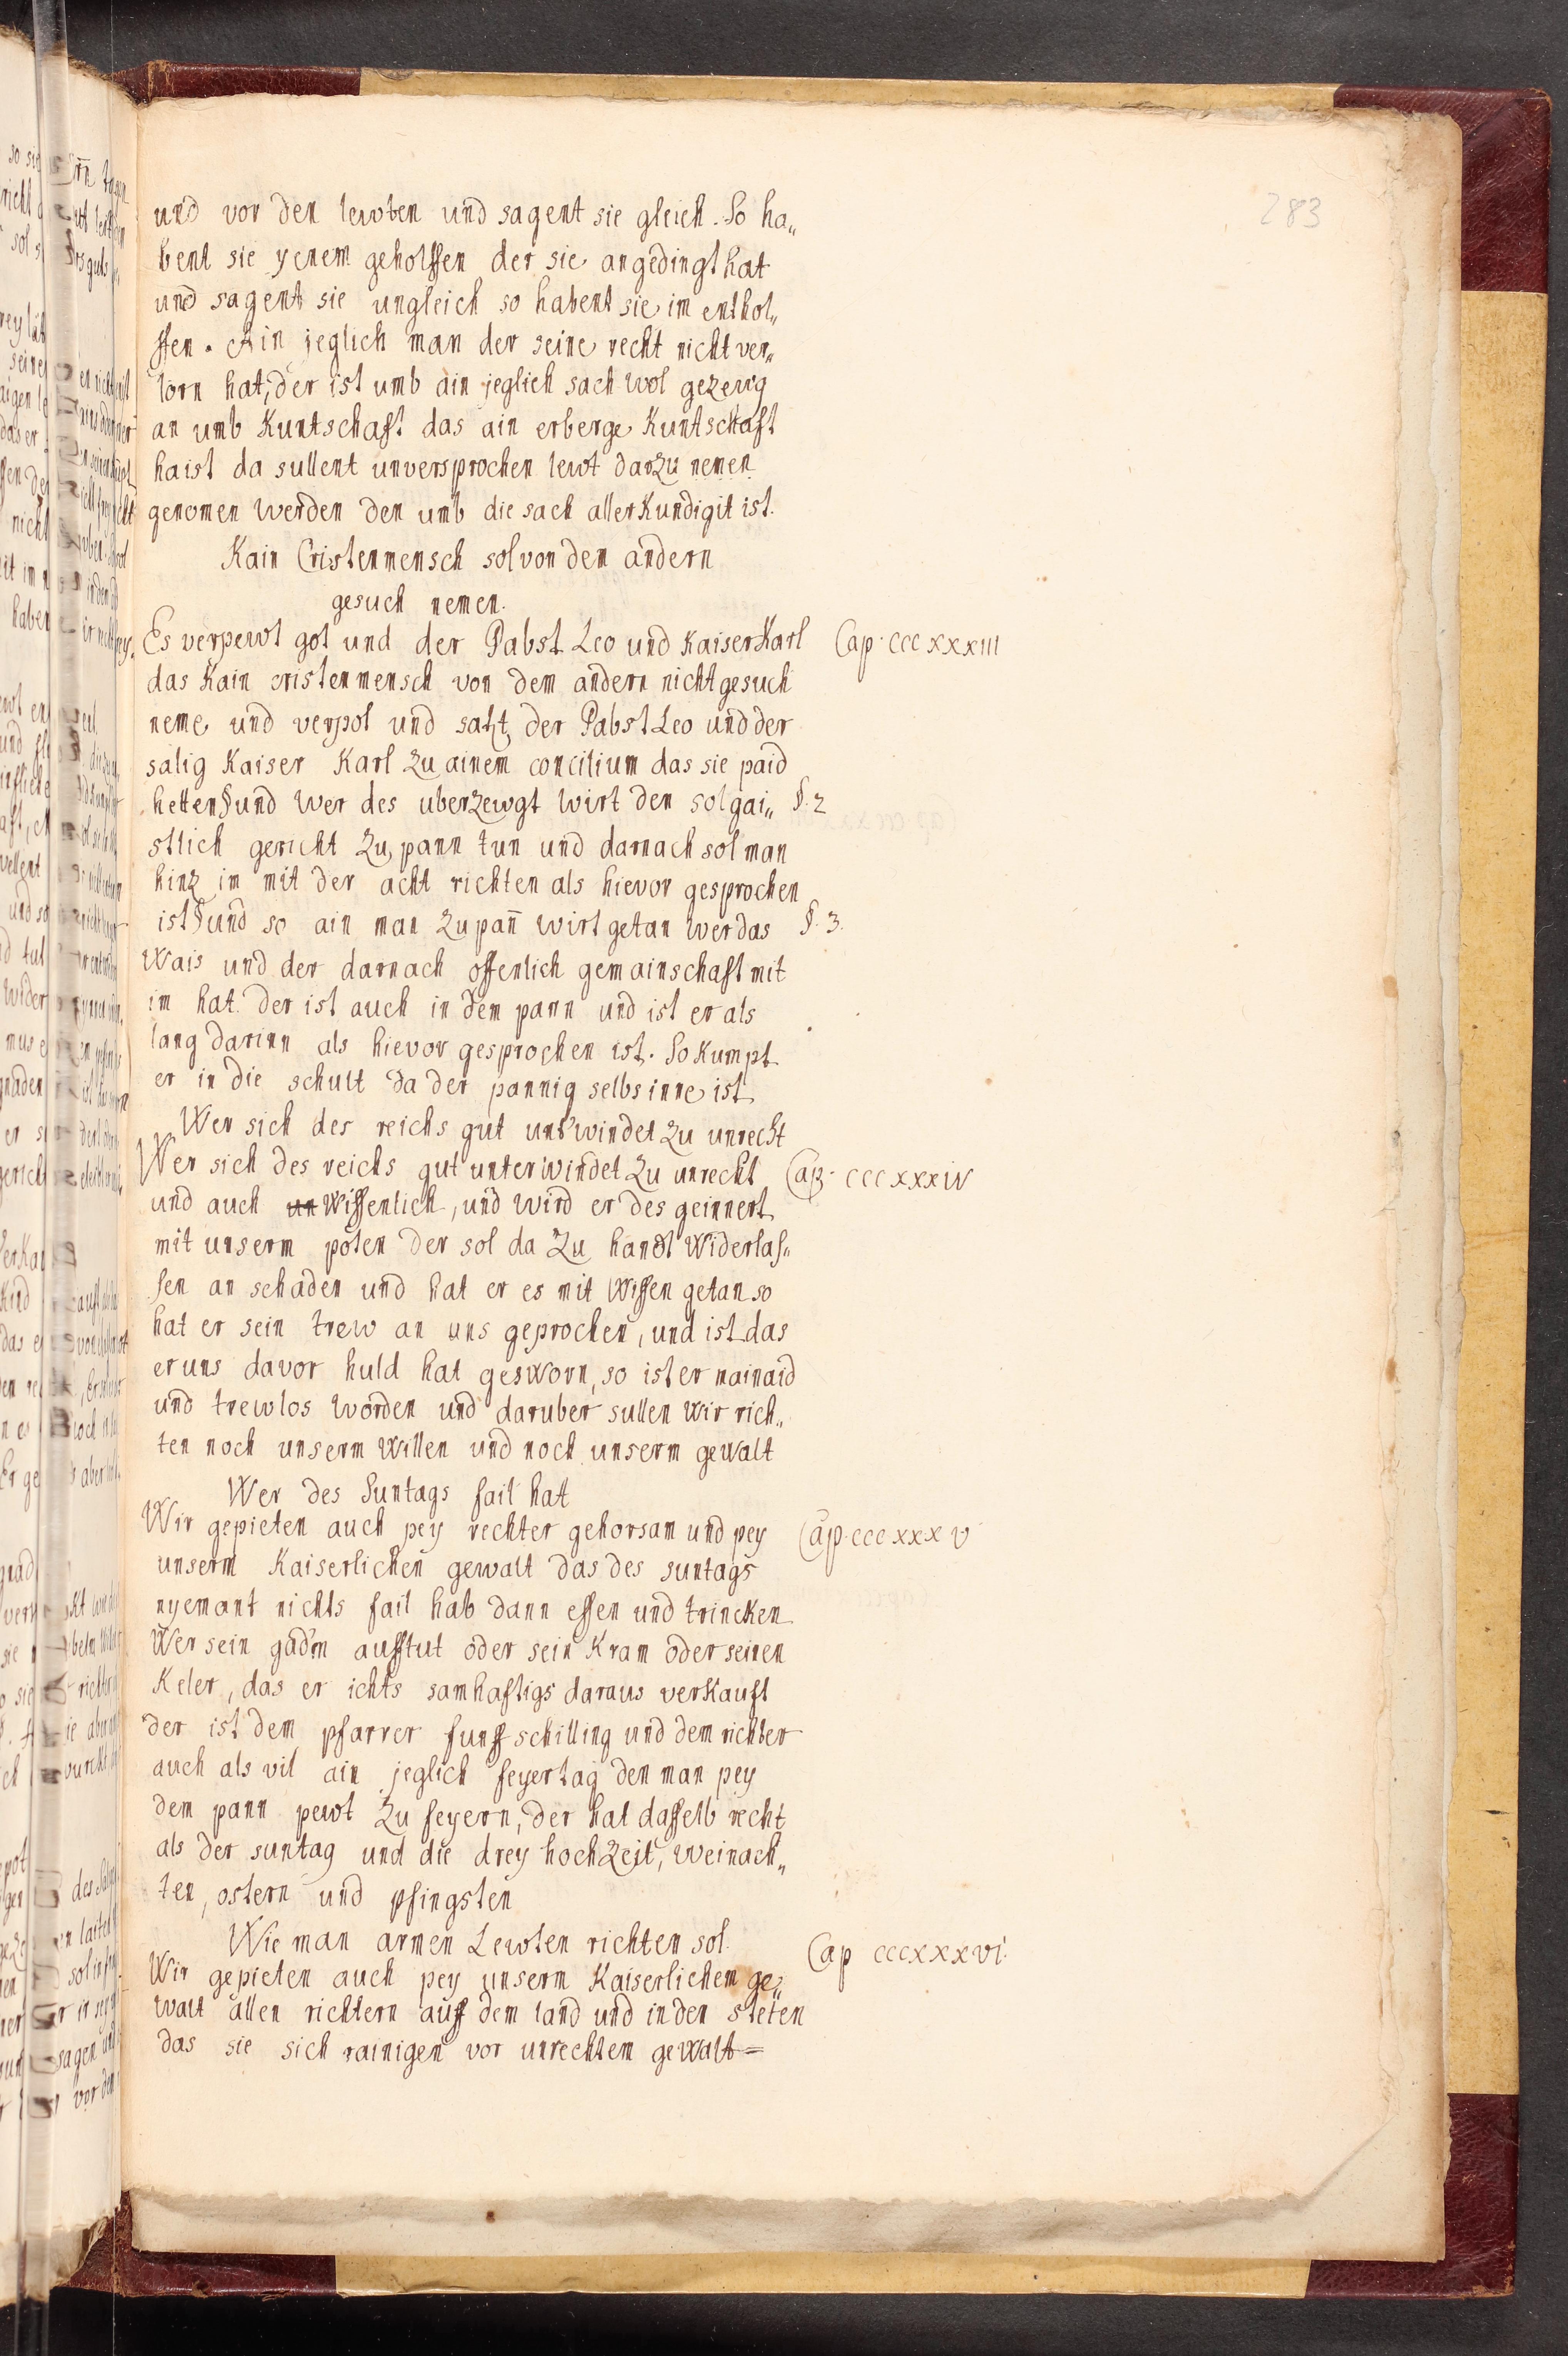 283
und vor den lewten und sagent sie gleich. So ha„
bent sie yenem geholffen der sie angedingt hat
und sagent sie ungleich so habent sie im enthol„
ffen. Ain jeglich man der seine recht nicht ver„
lorn hat, der ist umb ain jeglich sach wol gezewg
an umb Kuntschaft das ain erberge Kuntschaft
haist da sullent unversprochen lewt darzu nemen
genomen werden den umb die sach aller Kundigit ist.
Kain Cristenmensch sol von dem andern
gesuch nemen.
Es verpewt got und der Pabst Leo und Kaiser Karl Cap. cccxxxiii
das Kain cristenmensch von dem andern nicht gesuch
neme und verpot und satzt der Pabst Leo und der
salig Kaiser Karl zu ainem concilium das sie paid
hetten § und wer des uberzewgt wirt den sol gai„ §. 2
stlich gericht zu pann tun und darnach sol man
hinz im mit der acht richten als hievor gesprochen
ist § und so ain man zu pañ wirt getan wer das §. 3.
Wais und der darnach offenlich gemainschaft mit
im hat. der ist auch in dem pann und ist er als
lang darinn als hievor gesprochen ist. So Kumpt
er in die schult da der pannig selbs inne ist
Wer sich des reichs gut unt'windet zu unrecht
Wer sich des reichs gut unterwindet zu unrecht Cap. cccxxxiv
und auch un wissenlich, und wird er des geinnert
mit unserm poten der sol da zu handt widerlas„
sen an schaden und hat er es mit wissen getan so
hat er sein trew an uns geprochen, und ist das
er uns davor huld hat gesworn, so ist er mainaid
und trewlos worden und daruber sullen wir rich„
ten noch unserm willen und noch unserm gewalt
Wer des Suntags fail hat
Wir gepieten auch pey rechter gehorsam und pey Cap. cccxxxv
unserm Kaiserlichen gewalt das des suntags
nyemant nichts fail hab dann essen und trincken
Wer sein gad'm auftut oder sein Kram oder seinen
Keler, das er ichts samhaftigs daraus verkauft
der ist dem pfarrer funff schilling und dem richter
auch als vil ain jeglich feyertag den man pey
dem pann pewt zu feyern, der hat dasselb recht
als der suntag und die drey hochzeit, weinach„
ten, ostern und pfingsten
Wie man armen Lewten richten sol. Cap cccxxxvi.
Wir gepieten auch pey unserm Kaiserlichem ge„
walt allen richtern auff dem land und in den steten
das sie sich rainigen vor unrechtem gewalt=